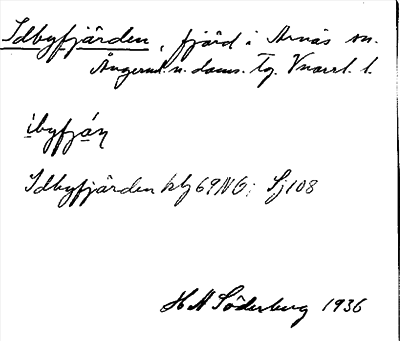 Idbyfjärden, fjärd i Arnäs sn.
Ångerml. n. doms. Tg. Vnorrl. l.
ibyfjạ́ṇ
Idbyfjärden kbl 69NO; Sj108
H A Söderberg 1936